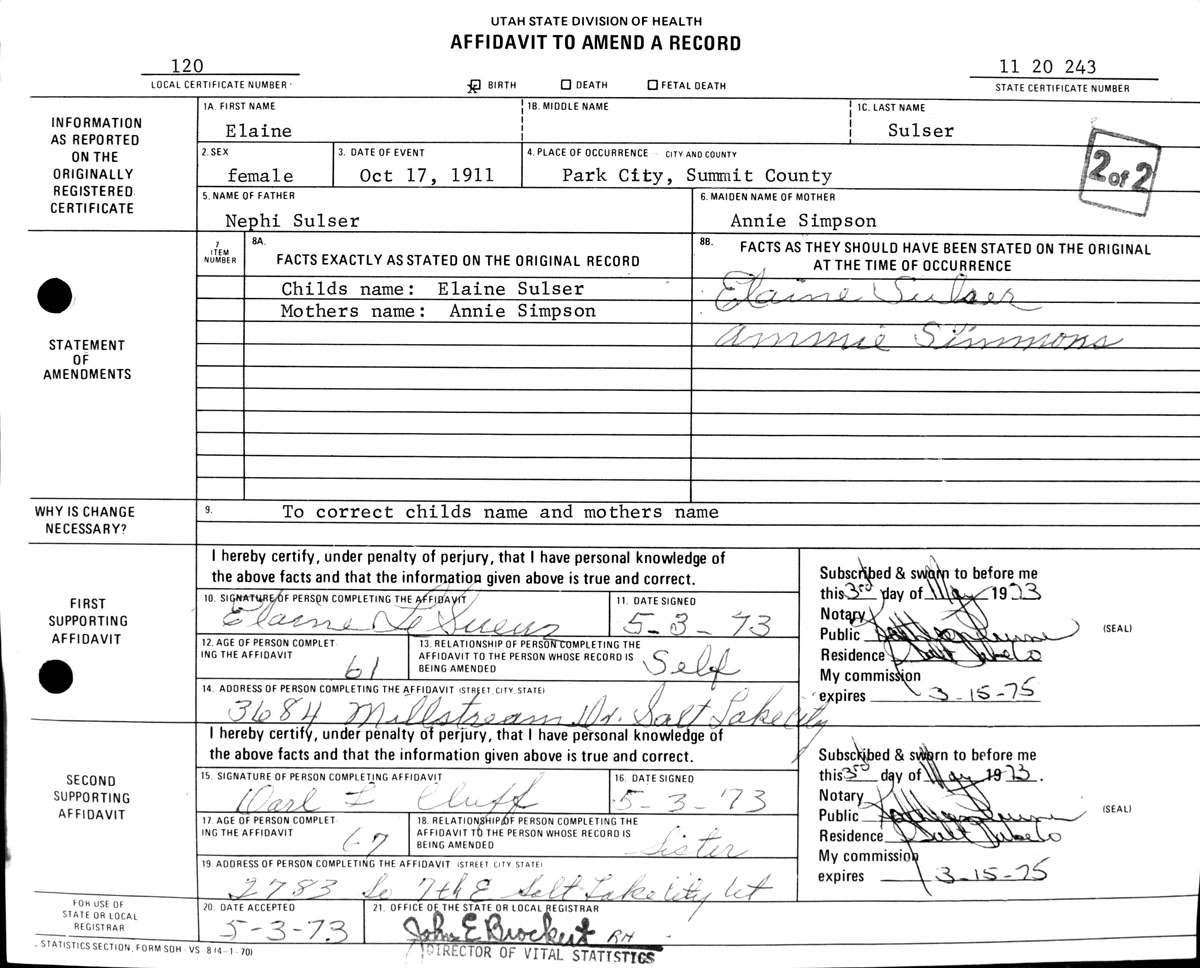 UTAH STATE DIVISION OF HEALTH
AFFIDAVIT TO AMEND A RECORD
120
LOCAL CERTIFICATE NUMBER
BIRTH DEATH FETAL DEATH
11 20 243
STATE CERTIFICATE NUMBER
INFORMATION
AS REPORTED
ON THE
ORIGINALLY
REGISTERED
CERTIFICATE
1A. FIRST NAME 1B. MIDDLE NAME 1C. LAST NAME
Elaine Sulser
2. SEX 3. DATE OF EVENT 4. PLACE OF OCCURRENCE CITY AND COUNTY
female Oct 17, 1911 Park City, Summit County
2 of 2
5. NAME OF FATHER 6. MAIDEN NAME OF MOTHER
Nephi Sulser Annie Simpson
STATEMENT
OF
AMENDMENTS
7
ITEM
NUMBER
8A.
FACTS EXACTLY AS STATED ON THE ORIGINAL RECORD
8B. FACTS AS THEY SHOULD HAVE BEEN STATED ON THE ORIGINAL
AT THE TIME OF OCCURRENCE
Childs name: Elaine Sulser Elaine Sulser
Mothers name: Annie Simpson Ammie Simmons
WHY IS CHANGE
NECESSARY?
9. To correct childs name and mothers name
FIRST
SUPPORTING
AFFIDAVIT
I hereby certify, under penalty of perjury, that I have personal knowledge of
the above facts and that the information given above is true and correct.
10. SIGNATURE OF PERSON COMPLETING THE AFFIDAVIT 11. DATE SIGNED
Elaine Le Sueur 5-3-73
12. AGE OF PERSON COMPLET
ING THE AFFIDAVIT
61
13. RELATIONSHIP OF PERSON COMPLETING THE
AFFIDAVIT TO THE PERSON WHOSE RECORD IS
BEING AMENDED
Self
14. ADDRESS OF PERSON COMPLETING THE AFFIDAVIT (STREET, CITY, STATE)
3684 Millstream Dr. Salt Lake City
Subscribed & sworn to before me
this 3rd day of May 1973
Notary
Public (SEAL)
Residence Salt Lake Co
My commission
expires 3-15-75
SECOND
SUPPORTING
AFFIDAVIT
I hereby certify, under penalty of perjury, that I have personal knowledge of
the above facts and that the information given above is true and correct.
15. SIGNATURE OF PERSON COMPLETING AFFIDAVIT 16. DATE SIGNED
Darl L Cluff 5-3-'73
17. AGE OF PERSON COMPLET
ING THE AFFIDAVIT
67
18. RELATIONSHIP OF PERSON COMPLETING THE
AFFIDAVIT TO THE PERSON WHOSE RECORD IS
BEING AMENDED
Sister
19. ADDRESS OF PERSON COMPLETING THE AFFIDAVIT (STREET, CITY, STATE)
2783 So 7th E Salt Lake City Ut
Subscribed & sworn to before me
this 3rd day of May 1973.
Notary
Public (SEAL)
Residence Salt Lake Co
My commission
expires 3-15-75
FOR USE OF
STATE OR LOCAL
REGISTRAR
20. DATE ACCEPTED 21. OFFICE OF THE STATE OR LOCAL REGISTRAR
5-3-73 John E Brockert RH
DIRECTOR OF VITAL STATISTICS
STATISTICS SECTION, FORM SDH-VS 8 (4-1-70)